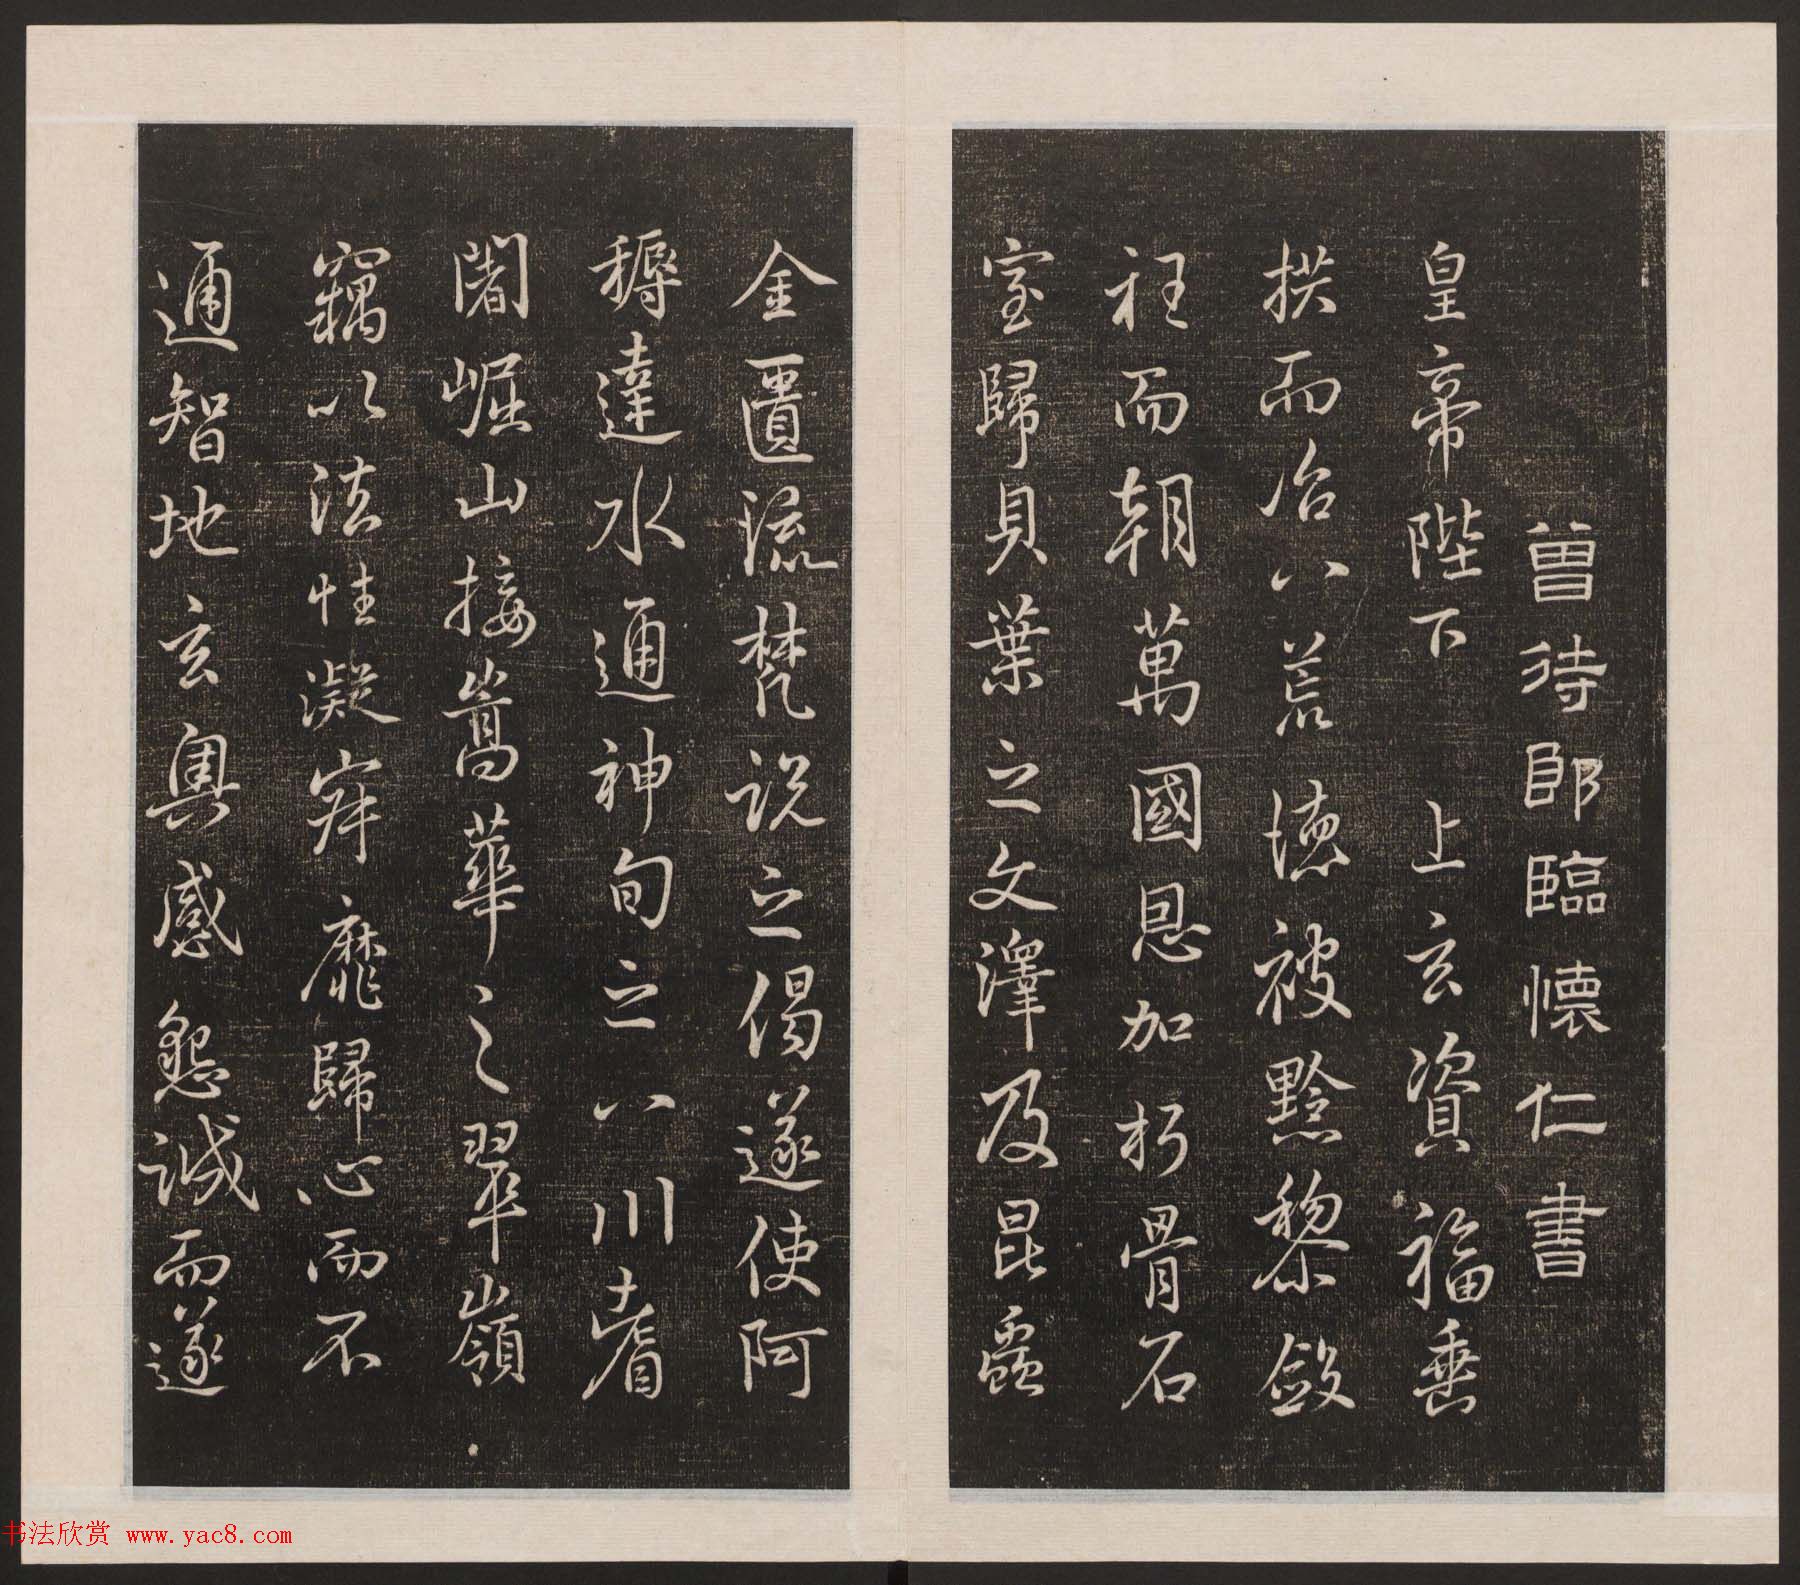 曾待郎臨懷仁書
皇帝陛下 上玄資福垂
拱而治八荒德被黔黎斂
衽而朝萬國恩加朽骨石
室歸貝葉之文澤及昆蟲
金匱流梵說之偈遂使阿
耨達水通神甸之八川耆
闍崛山接嵩華之翠嶺
竊以法性凝寂靡歸心而不
通智地玄奧感懇誠而遂
书法欣赏 www.yac8.com